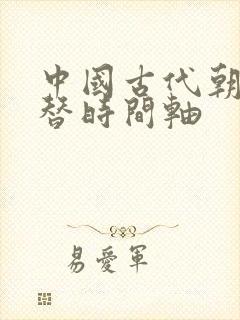 中國古代朝
替時間軸
易愛軍